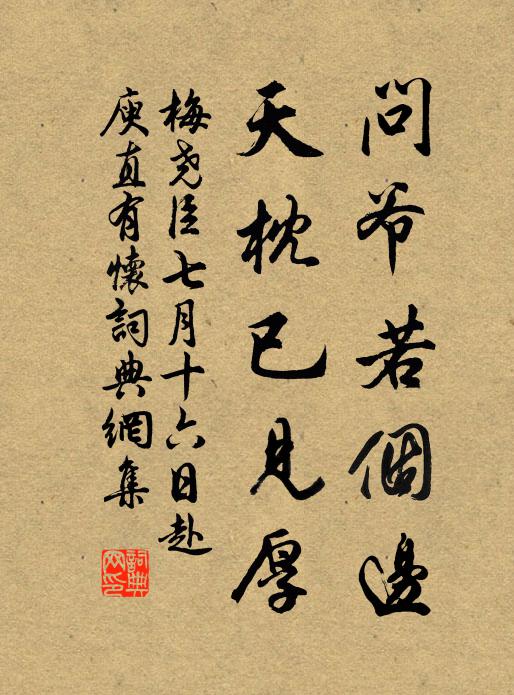 問爷若個邊
天枕已見厚
梅尧臣七月十六日赴
庾直有懷詞典網集
詞典
网印